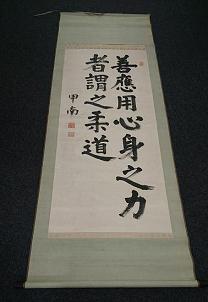 善應用心身之力
者謂之柔道
甲南